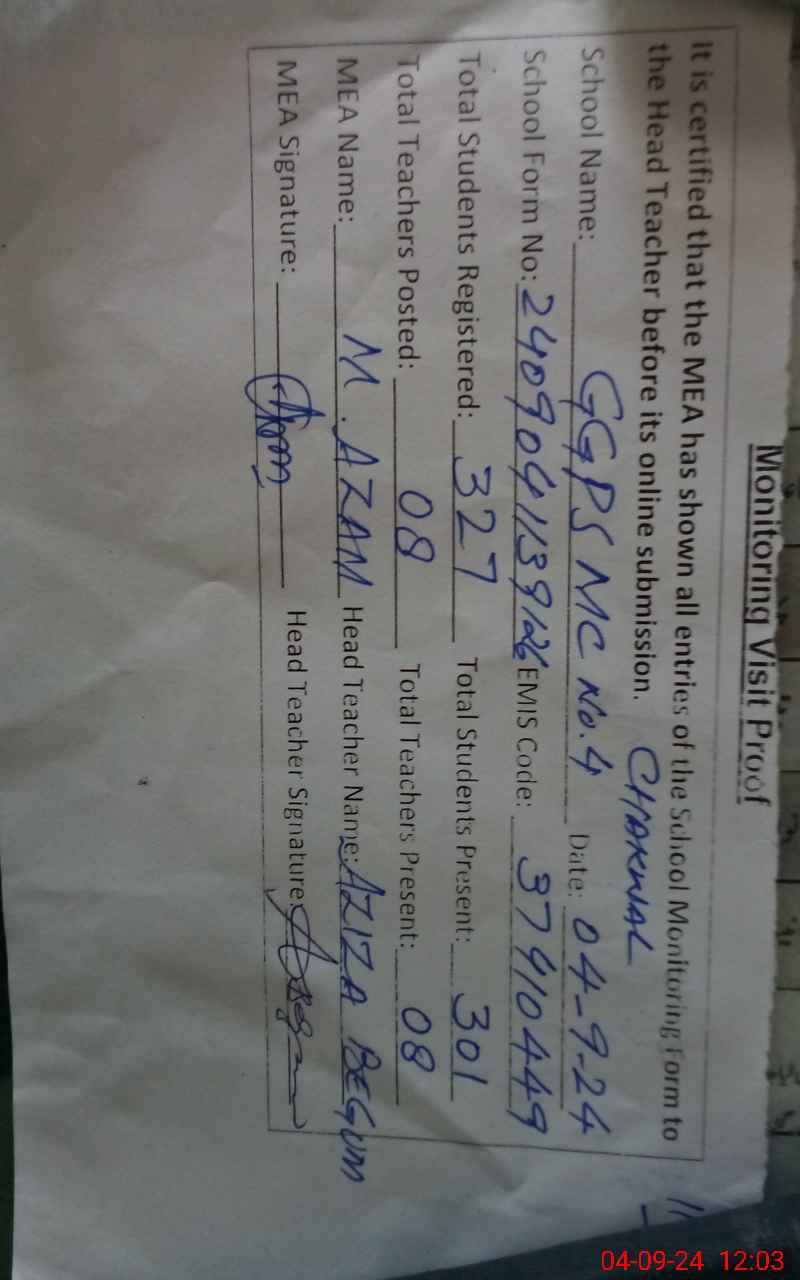 Monitoring Visit Proof
It is certified that the MEA has shown all entries of the School Monitoring Form to
the Head Teacher before its online submission. CHAKWAL
School Name: GGPS MC No.4 Date: 04-9-24
School Form No: EMIS Code: 37410449
Total Students Registered: 327 Total Students Present: 301
Total Teachers Posted: 08 Total Teachers Present: 08
MEA Name: M. AZAM Head Teacher Name: AZIZA BEGUM
MEA Signature: Head Teacher Signature:
04-09-24 12:03